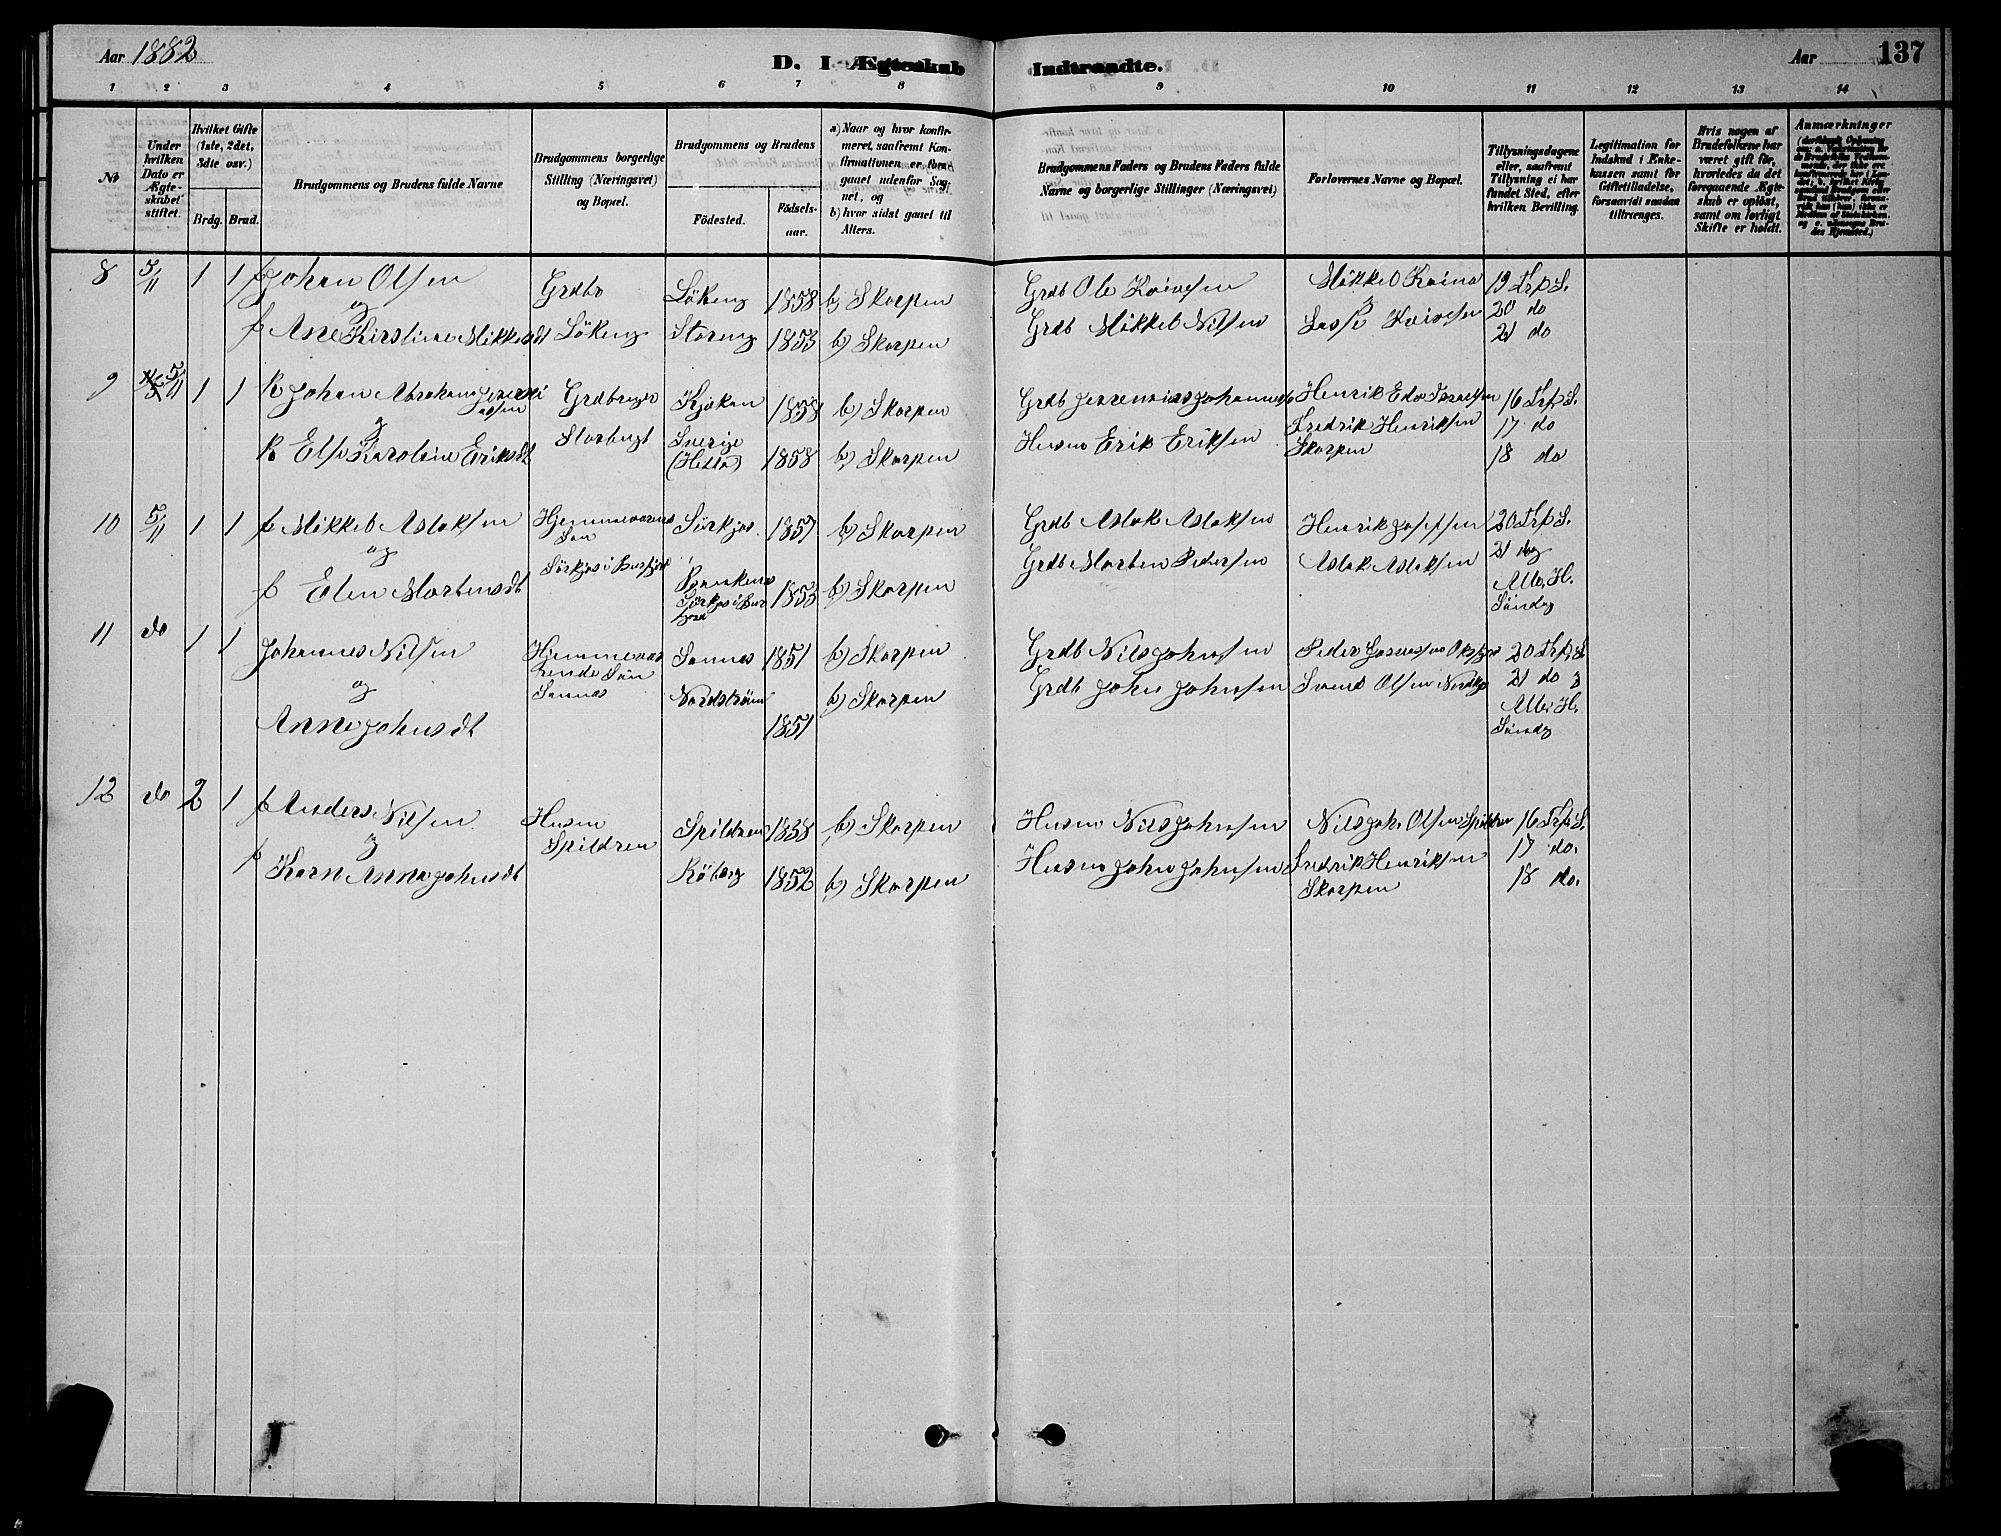 Aar 1882
D. I Ægteskab Indtraadte.
Aar 137
1 2 3 4 5 6 7 8 9 10 11 12 13 14
No
Under hvilken Dato er Ægteskabet stiftet.
Hvilket Gifte (1ste, 2det, 3die osv.)
Brdg. Brud.
Brudgommens og Brudens fulde Navne
Brudgommens borgerlige Stilling (Næringsvei) og Bopæl.
Brudgommens og Brudens
Födested.
Födsels-aar.
a) Naar og hvor konfirmeret, saafremt Konfirmationen er foregaaet udenfor Sognet, og
b) hvor sidst gaaet til Alters.
Brudgommens Faders og Brudens Faders fulde Navne og borgerlige Stillinger (Næringsvei)
Forlovernes Navne og Bopæl.
Tillysningsdagene eller, saafremt Tillysning ei har fundet Sted, efter hvilken Bevilling.
Legitimation for Indskud i Enkekassen samt for Giftetilladelse, forsaavidt saadan tiltrænges.
Hvis nogen af Brudefolkene har været gift før, hvorledes da det foregaaende Ægteskab er opløst, samt om lovligt Skifte er holdt.
Anmærkninger
8 5/11 1 1 f Johan Olsen Grdbr Løkeng 1858 b) Skorpen Grdb Ole Kaivesen Mikkel Kaino 19 Trf S.
og 20 do
f Ane Kirstine Mikkelsdt Løkeng Storeng 1853 b) Skorpen Grdb Mikkel Nilsen Lasse Kaivesen 21 do
9 5/11 1 1 K Johan Abraham Jeremiassen Grdbruger Kjækan 1858 b) Skorpen Grdb Jeremias Johannes Henrik Edv Israelsen 16 Trf S.
og Storbugt Sverige Fredrik Henriksen 17 do
K Else Karoline Eriksdt (Hetta) 1858 b) Skorpen Husm Erik Eriksen Skorpen 18 do
10 5/11 1 1 f Mikkel Aslaksen Hjemmeværende Søn Sørkjos 1857 b) Skorpen Grdb Aslak Aslaksen Henrik Josefsen 20 Trf S.
og Sørkjos i Burfjord 21 do og
f Elen Mortensdt Sørkjos i Burfjord 1853 b) Skorpen Grdb Morten Pedersen Aslak Aslaksen Alle H. Søndag
11 do 1 1 Johannes Nilsen Hjemmeværende Søn Sannes 1851 b) Skorpen Grdb Nils Johnsen Peder 20 Trf S.
og Sannes Nordstrøm b) Skorpen Grdb John Johnsen Svend Olsen 21 do og
Anne Johnsdt 1851 Alle H. Søndag
12 do 2 1 f Anders Nilsen Husm Spildren 1838 b) Skorpen Husm Nils Johnsen Nils Joh. Olsen Spildren 16 Trf S.
og Spildren 17 do.
f Karn Anna Johnsdt Køberg 1852 b) Skorpen Husm John Johnsen Fredrik Henriksen Skorpen 18 do.